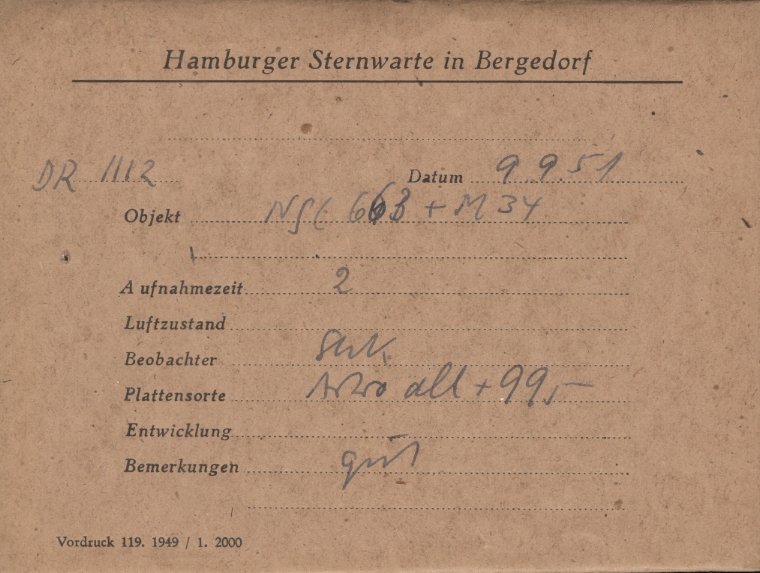 Hamburger Sternwarte in Bergedorf
DR 1112 Datum 9.9.51
Objekt NGC 663 + M 34
Aufnahmezeit 2
Luftzustand
Beobachter
Plattensorte Astro all + 99,–
Entwicklung
Bemerkungen gut
Vordruck 119. 1949 / 1. 2000